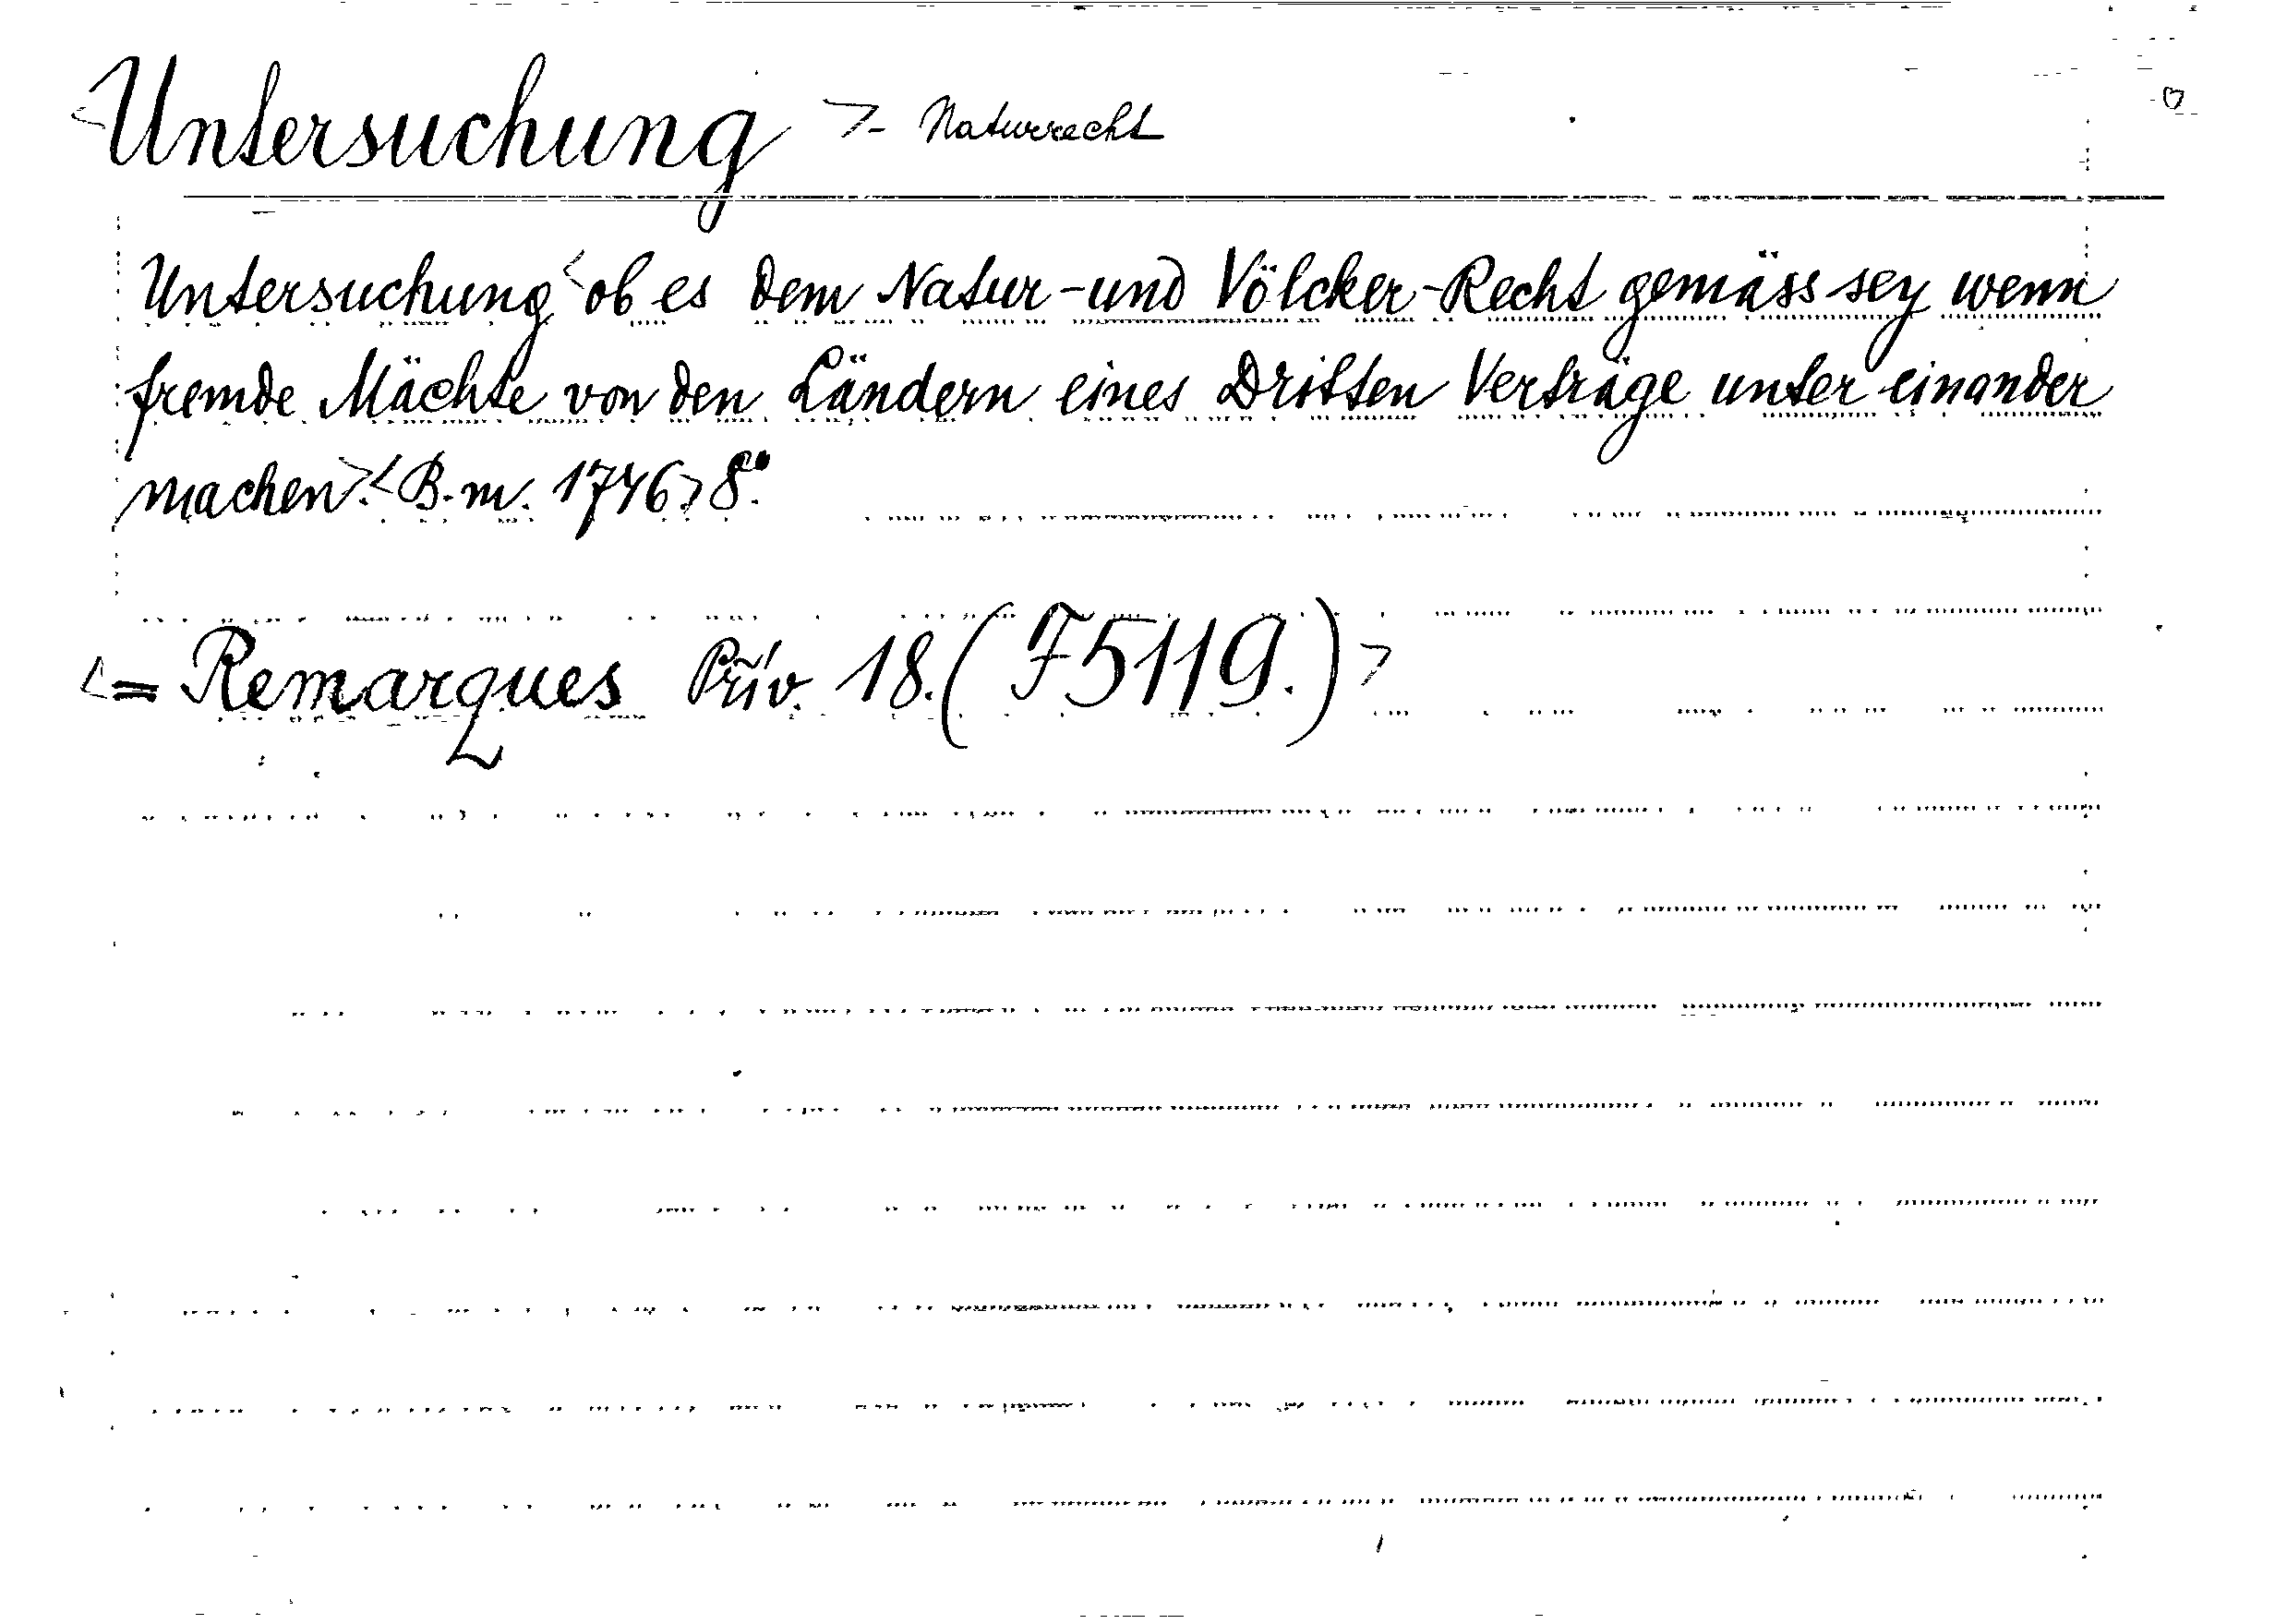 <Untersuchung >- Naturrecht
Untersuchung <ob es dem Natur-und Völcker-Recht gemäss sey wenn
fremde Mächte von den Ländern eines Dritten Verträge unter einander
machen>.<B.m. 1746> 8º.
<= Remarques Priv. 18. (F5119.)>